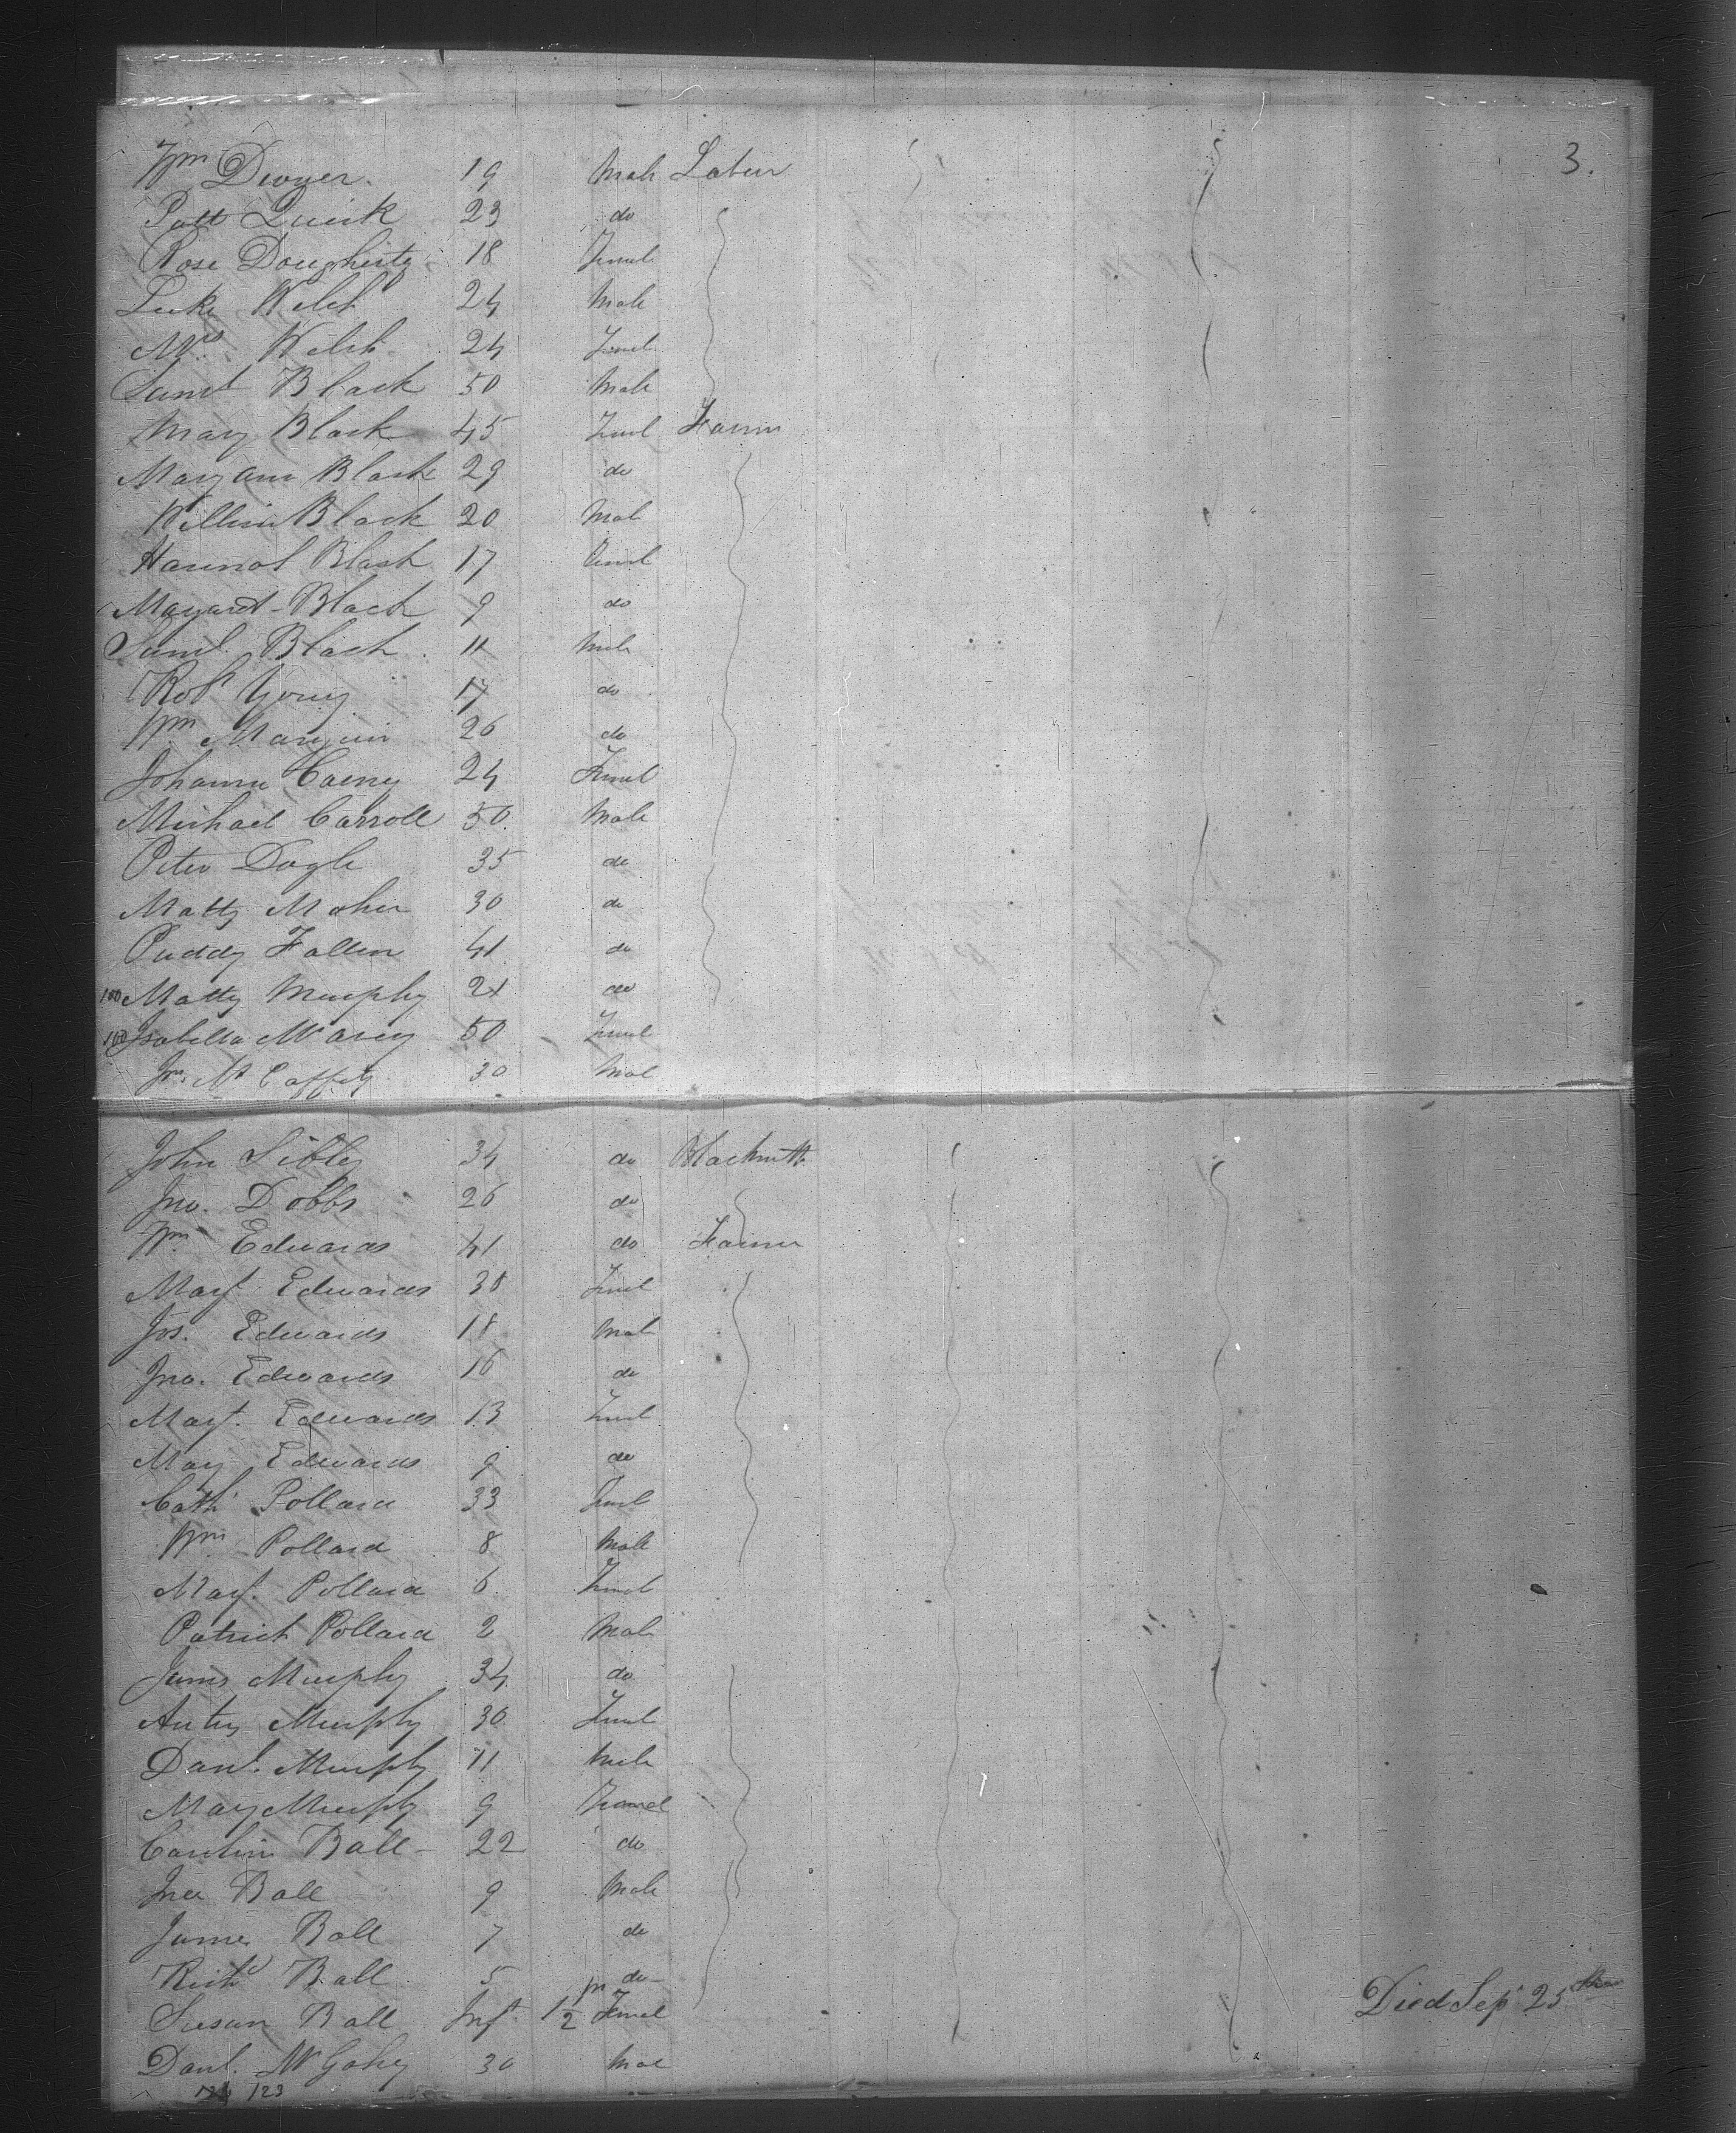 3.
Wm Dwyer 19 Male Labur
Patt Quirk 23 do
Rose Dougherty 18 Femel
Luke Welsh 24 Male
Mrs Welsh 24 Femel
Saml Black 50 Male
Mary Black 45 Femel Farmr
Mary ann Black 29 do
William Black 20 Male
Hannah Black 17 Femel
Margaret Black 9 do
Saml Black 11 Male
Robt Young 17 do
Wm 26 do
Johanna 24 Femel
Michael Carroll 50 Male
Peter Dogle 35 do
Matty Maher 30 do
Puddy Fallen 41 do
100 Matty Murphy 21 do
Isabella 50 Femel
Jno. Mc Caffety 30 Mal
John Sibley 34 do Blacksmith
Jno. Dobbs 26 do
Wm Edwards 41 do Farmer
Margt. Edwards 38 Femel
Jos. Edwards 18 Male
Jno. Edwards 16 do
Margt. Edwards 13 Femel
Mary Edwards 9 do
Cath Pollard 33 Femel
Wm Pollard 8 Male
Margt. Pollard 6 Femel
Patrick Pollard 2 Male
James Murphy 34 do
Murphy 30 Femel
Danl. Murphy 11 Male
Mary Murphy 9 Femel
Carolin Ball 22 do
Jno Ball 9 Male
James Ball 7 do
Richd Ball 5 do
Susan Ball Inft. 1 1/2 Femel Died Sep 25th
Danl. McGahey 30 Mal
123